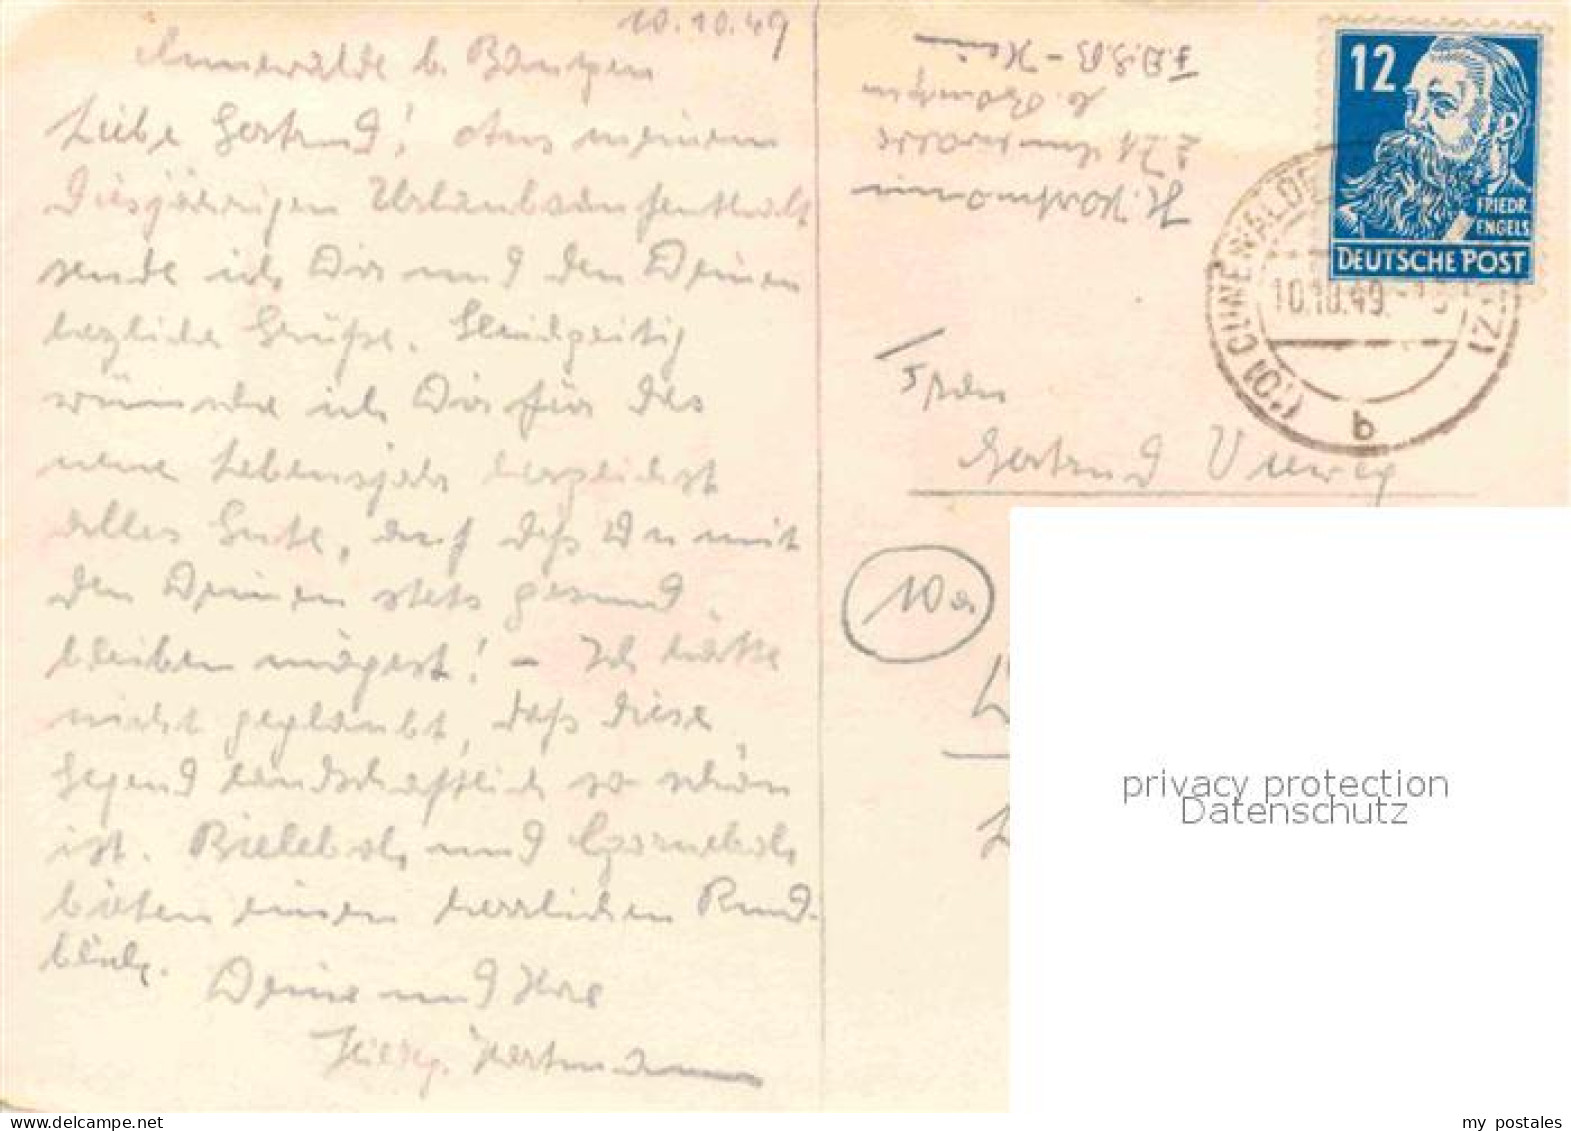 10.10.49
Cunewalde b. Bautzen
Liebe Gertrud! Aus meinem
diesjährigen Urlaubsaufenthalt
sende ich Dir und den Deinen
herzliche Grüße. Gleichzeitig
wünsche ich Dir für das
neue Lebensjahr herzlichst
alles Gute, auf daß Du mit
den Deinen stets gesund
bleiben mögest! – Ich hätte
nicht geglaubt, daß diese
Gegend landschaftlich so schön
ist. Bieleboh und Czorneboh
bieten einen herrlichen Rund-
blick.
Deine und Ihre
Hartmann
F.D.G.B.-Heim
b. Bautzen
Cunewalde
12
FRIEDR.
ENGELS
DEUTSCHE POST
(10) CUNEWALDE
10.10.49.
b
Gertrud Vieweg
10a
privacy protection
Datenschutz
my-delcampe
my postales